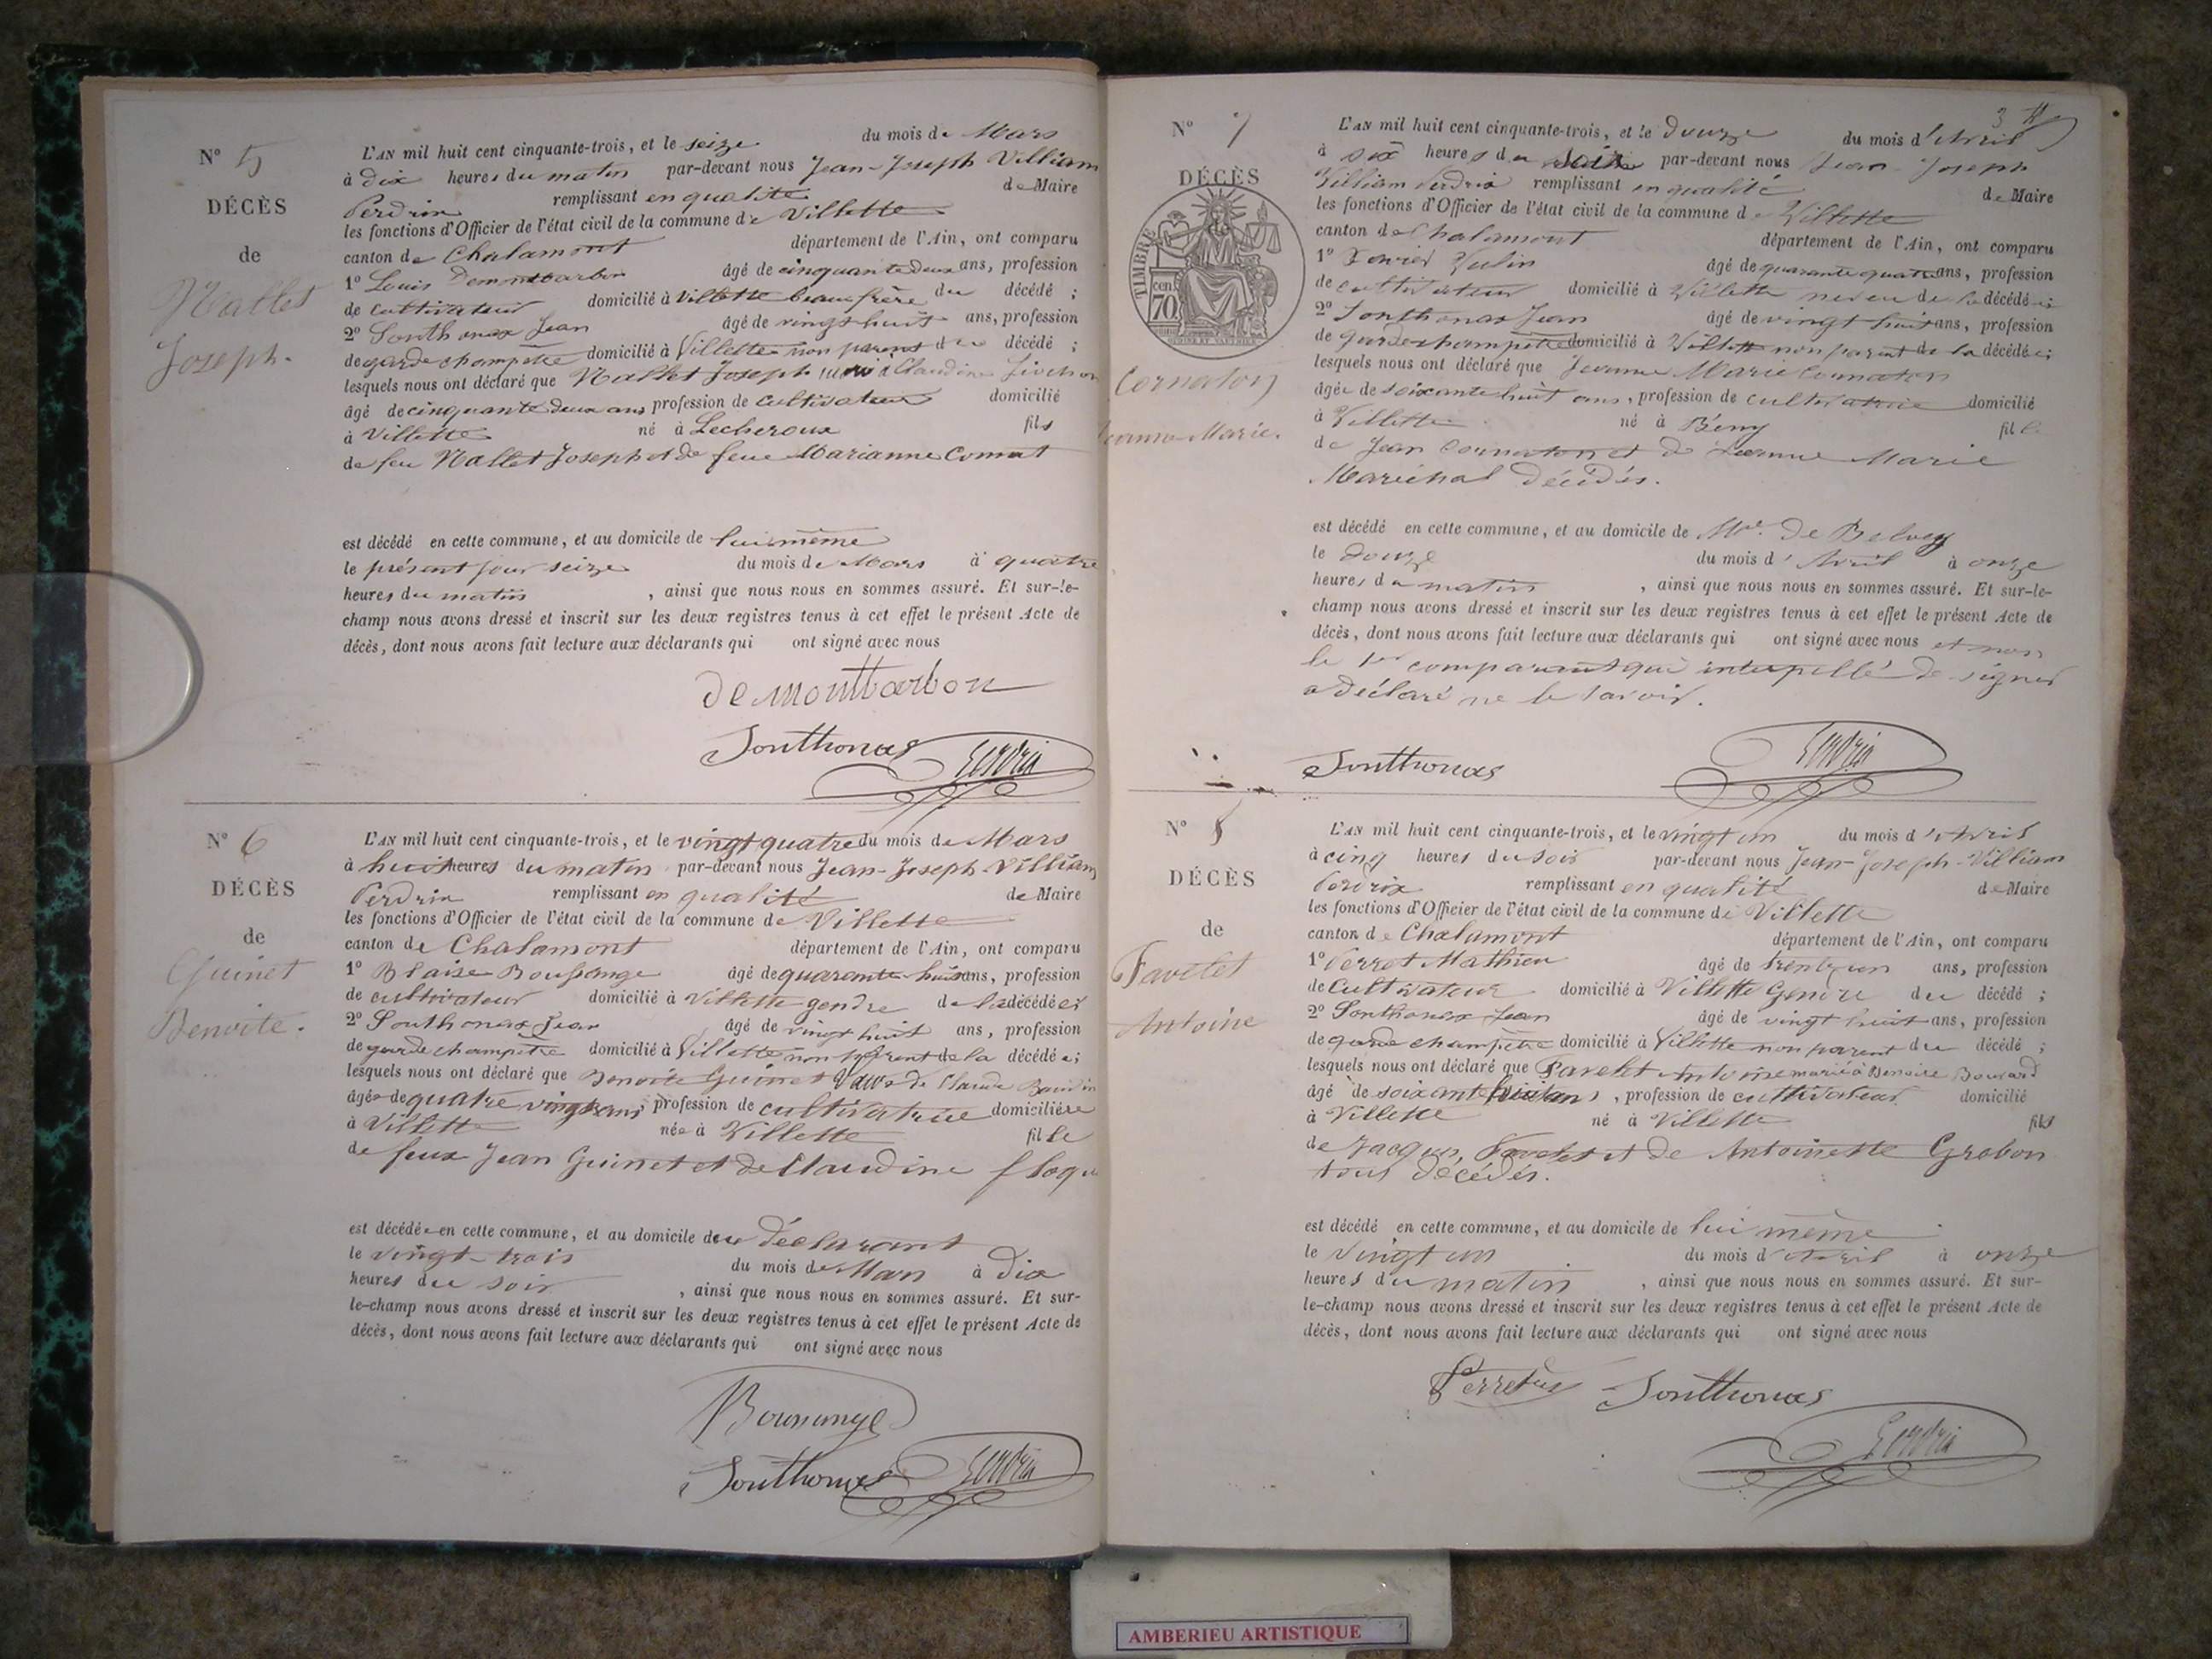 N° 5
DÉCÈS
de
Nallet
Joseph.
L'AN mil huit cent cinquante-trois, et le seize du mois de Mars
à dix heures du matin par-devant nous Jean-Joseph Villiam
Perdrix remplissant en qualité de Maire
les fonctions d'Officier de l'état civil de la commune de Villette
canton de Chalamont département de l'Ain, ont comparu
1° Louis Demontbarbon âgé de cinquante deux ans, profession
de cultivateur domicilié à Villette beaufrère du décédé ;
2° Sonthonax Jean âgé de vingt huit ans, profession
de garde champetre domicilié à Villette non parent du décédé ;
lesquels nous ont déclaré que Nallet Joseph Claudine
âgé de cinquante deux ans profession de cultivateur domicilié
à Villette né à Lecheroux fils
de feu Nallet Joseph et de feue Marianne Connat
est décédé en cette commune, et au domicile de lui même
le présent jour seize du mois de Mars à quatre
heures du matin , ainsi que nous nous en sommes assuré. Et sur-le-
champ nous avons dressé et inscrit sur les deux registres tenus à cet effet le présent Acte de
décès, dont nous avons fait lecture aux déclarants qui ont signé avec nous
de montbarbon
Sonthonas Perdrix
N° 6
DÉCÈS
de
Guinet
Benoite.
L'AN mil huit cent cinquante-trois, et le vingt quatre du mois de Mars
à huit heures du matin par-devant nous Jean-Joseph Villiam
Perdrix remplissant en qualité de Maire
les fonctions d'Officier de l'état civil de la commune de Villette
canton de Chalamont département de l'Ain, ont comparu
1° Blaise Boussange âgé de quarante huit ans, profession
de cultivateur domicilié à Villette gendre de la décédée ;
2° Sonthonax Jean âgé de vingt huit ans, profession
de garde champetre domicilié à Villette non parent de la décédée ;
lesquels nous ont déclaré que Benoite Guinet Veuve de Claude
âgée de quatre vingt ans, profession de cultivatrice domiciliée
à Villette née à Villette fille
de feux Jean Guinet et de Claudine
est décédée en cette commune, et au domicile du déclarant
le vingt-trois du mois de Mars à dix
heures du soir , ainsi que nous nous en sommes assuré. Et sur-
le-champ nous avons dressé et inscrit sur les deux registres tenus à cet effet le présent Acte de
décès, dont nous avons fait lecture aux déclarants qui ont signé avec nous
Boussange
Sonthonas Perdrix
3
N° 7
DÉCÈS
TIMBRE
70 cen
Cornaton
Jeanne-Marie.
L'AN mil huit cent cinquante-trois, et le douze du mois d'Avril
à six heures du soir par-devant nous Jean-Joseph
Villiam Perdrix remplissant en qualité de Maire
les fonctions d'Officier de l'état civil de la commune de Villette
canton de Chalamont département de l'Ain, ont comparu
1° Xavier Vulin âgé de quarante quatre ans, profession
de cultivateur domicilié à Villette neveu de la décédée ;
2° Sonthonax Jean âgé de vingt huit ans, profession
de garde champetre domicilié à Villette non parent de la décédée ;
lesquels nous ont déclaré que Jeanne Marie Cornaton
âgée de soixante huit ans, profession de cultivatrice domicilié
à Villette né à Bény fille
de Jean Cornaton et de Jeanne Marie
Maréchal décédés.
est décédé en cette commune, et au domicile de Mr. De Belvey
le douze du mois d'Avril à onze
heures du matin , ainsi que nous nous en sommes assuré. Et sur-le-
champ nous avons dressé et inscrit sur les deux registres tenus à cet effet le présent Acte de
décès, dont nous avons fait lecture aux déclarants qui ont signé avec nous et non
le 1er comparant qui interpellé de signer
a déclaré ne le savoir.
Sonthonas Perdrix
N° 8
DÉCÈS
de
Favelet
Antoine
L'AN mil huit cent cinquante-trois, et le vingt un du mois d'Avril
à cinq heures du soir par-devant nous Jean-Joseph-Villiam
Perdrix remplissant en qualité de Maire
les fonctions d'Officier de l'état civil de la commune de Villette
canton de Chalamont département de l'Ain, ont comparu
1° Perret Mathieu âgé de trente un ans, profession
de cultivateur domicilié à Villette Gendre du décédé ;
2° Sonthonax Jean âgé de vingt huit ans, profession
de garde champetre domicilié à Villette non parent du décédé ;
lesquels nous ont déclaré que Favelet Antoine marié à Benoite
âgé de soixante huit ans, profession de cultivateur domicilié
à Villette né à Villette fils
de Jacques Favelet et de Antoinette Grobon
tous décédés.
est décédé en cette commune, et au domicile de lui même
le vingt un du mois d'Avril à onze
heures du matin , ainsi que nous nous en sommes assuré. Et sur-
le-champ nous avons dressé et inscrit sur les deux registres tenus à cet effet le présent Acte de
décès, dont nous avons fait lecture aux déclarants qui ont signé avec nous
Perret Sonthonas
Perdrix
AMBERIEU ARTISTIQUE